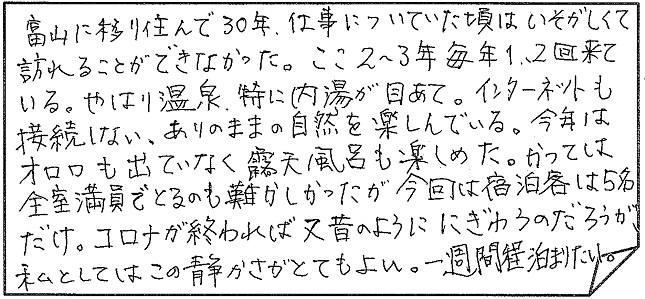 富山に移り住んで30年、仕事についていた頃はいそがしくて
訪れることができなかった。ここ2～3年毎年1、2回来て
いる。やはり温泉、特に内湯が目あて。インターネットも
接続しない、ありのままの自然を楽しんでいる。今年は
オロロも出ていなく露天風呂も楽しめた。かつては
全室満員でとるのも難かしかったが今回は宿泊客は5名
だけ。コロナが終われば又昔のように にぎわうのだろうが、
私としてはこの静かさがとてもよい。一週間程泊まりたい。